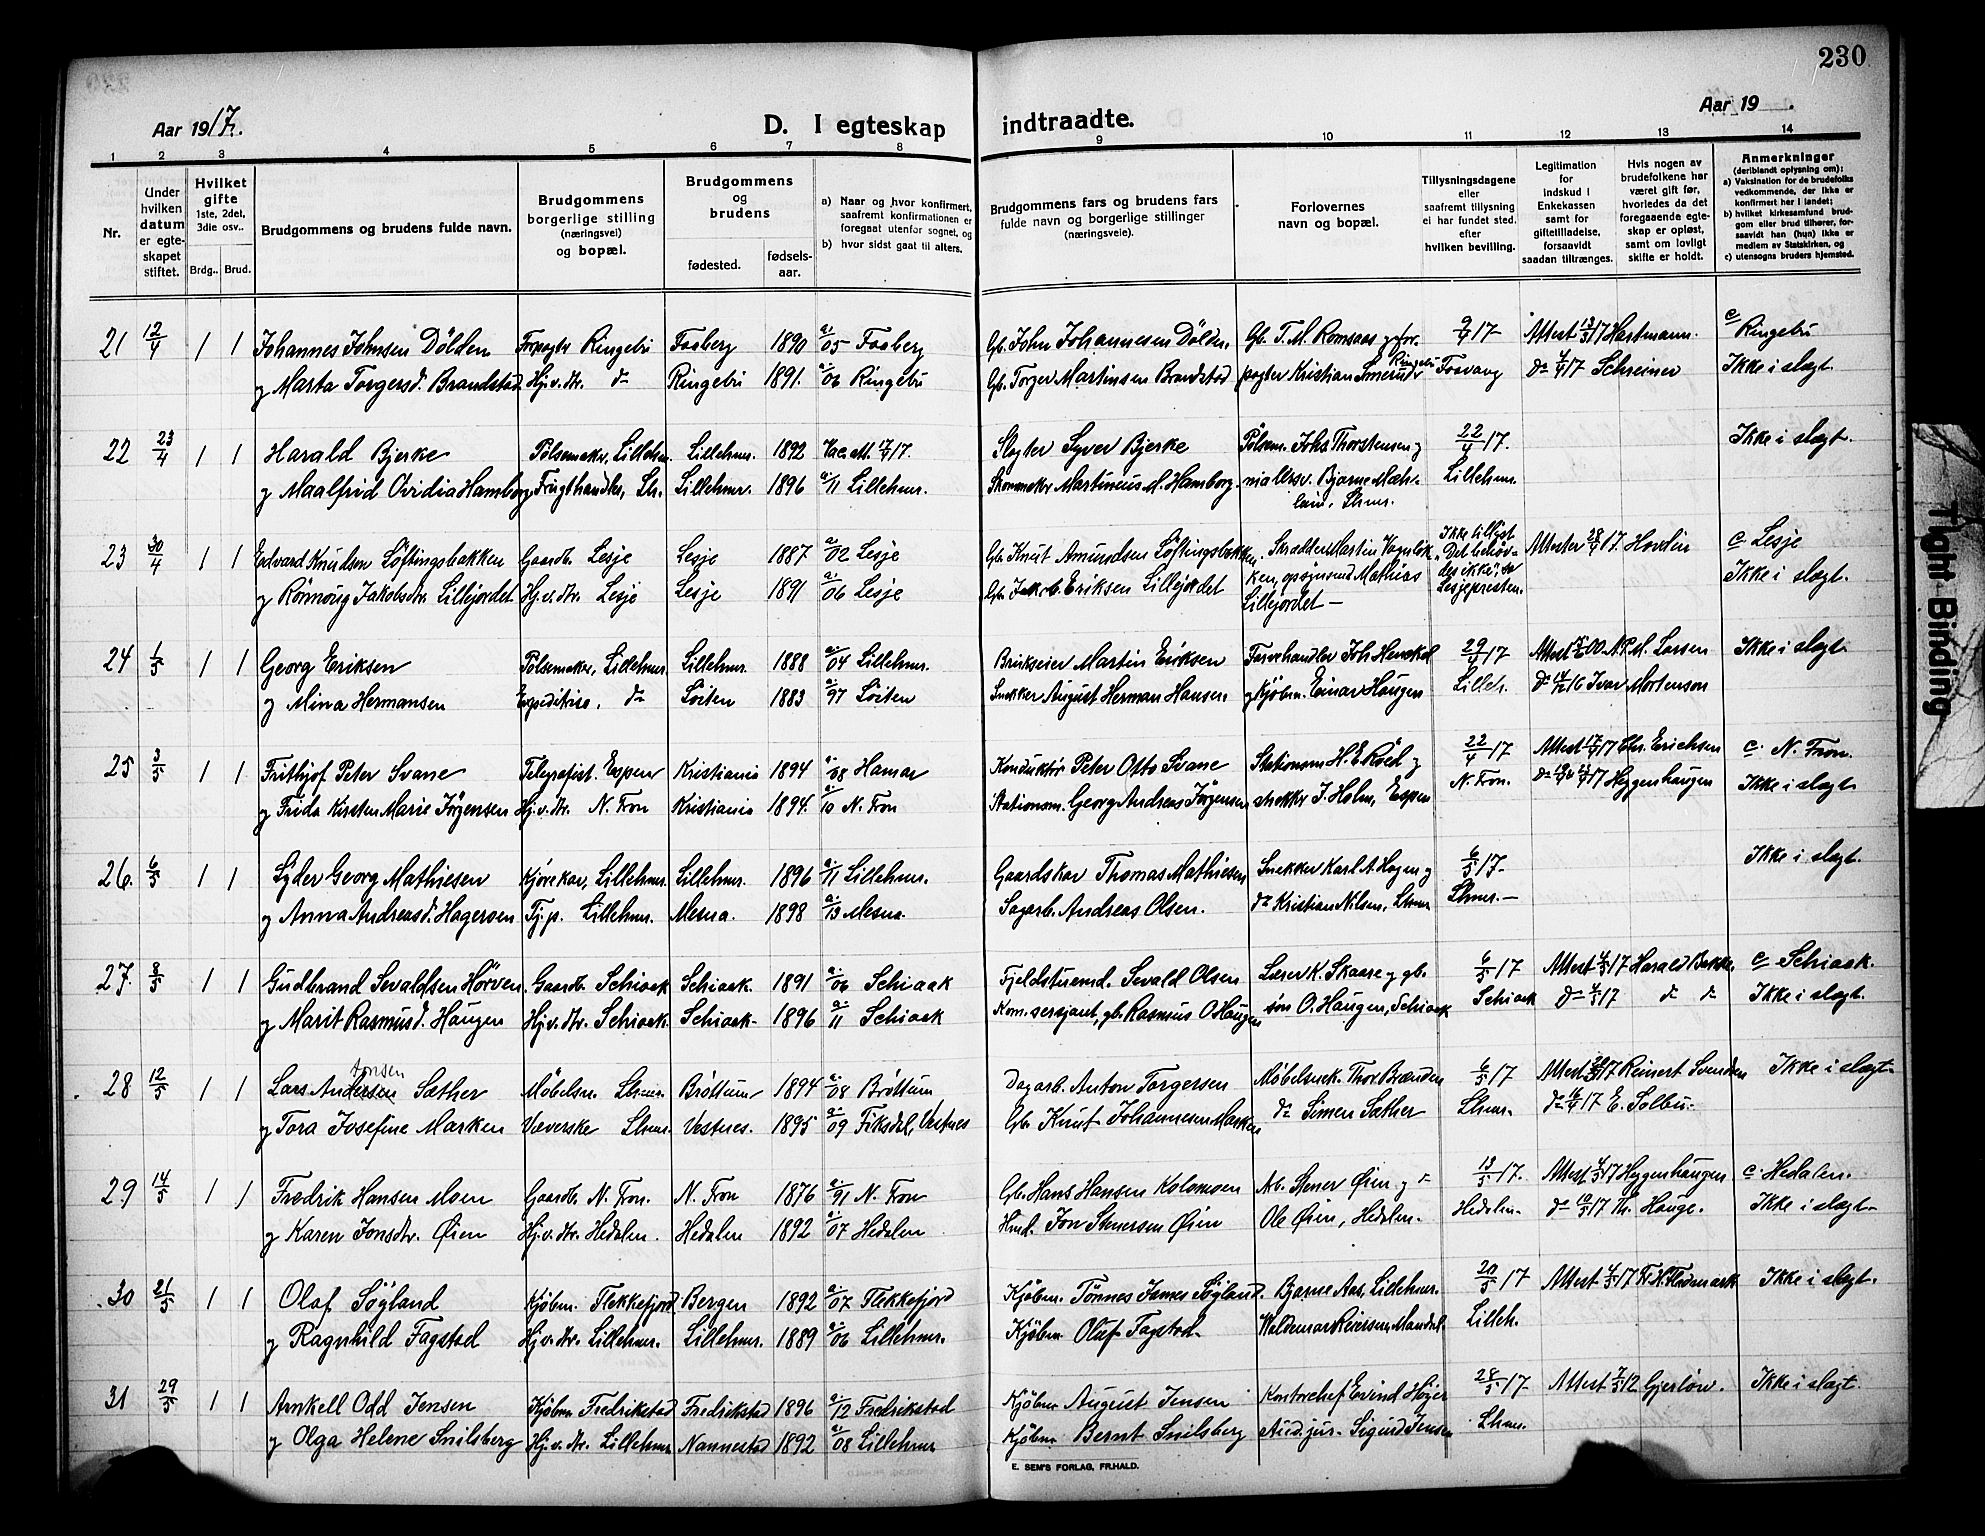 230
Aar 1917.
D. I egteskap indtraadte.
Aar 19
1 2 3 4 5 6 7 8 9 10 11 12 13 14
Nr.
Under hvilken datum er egteskapet stiftet.
Hvilket gifte 1ste, 2det, 3die osv..
Brdg.. Brud.
Brudgommens og brudens fulde navn.
Brudgommens borgerlige stilling (næringsvei) og bopæl.
Brudgommens og brudens
fødested. fødselsaar.
a) Naar og hvor konfirmert, saafremt konfirmationen er foregaat utenfor sognet, og
b) hvor sidst gaat til alters.
Brudgommens fars og brudens fars fulde navn og borgerlige stillinger (næringsveie).
Forlovernes navn og bopæl.
Tillysningsdagene eller saafremt tillysning ei har fundet sted. efter hvilken bevilling.
Legitimation for indskud i Enkekassen samt for giftetilladelse, forsaavidt saadan tiltrænges.
Hvis nogen av brudefolkene har været gift før, hvorledes da det foregaaende egteskap er opløst, samt om lovligt skifte er holdt.
Anmerkninger (deriblandt oplysning om):
a) Vaksination for de brudefolks vedkommende, der ikke er konfirmert her i landet;
b) hvilket kirkesamfund brudgom eller brud tilhører, forsaavidt han (hun) ikke er medlem av Statskirken, og
c) utensogns bruders hjemsted.
21 12/4 1 1 Johannes Johnsen Dölden Forpagter Ringebu Faaberg 1890 a/05 Faaberg Gb. John Johannesen Dölden. Gb. T. M. Romsaas og for- 9/4 17 Attest 13/3 17 Hartmann. c Ringebu
og Marta Torgersd. Brandstad Hj.v.dtr. do Ringebu 1891. a/06 Ringebu Gb. Torger Martinsen Brandstad pagter Kristian Smerud Ringebu Fosvang do 4/4 17 Schreiner Ikke i slægt.
22 23/4 1 1 Harald Bjerke Pölsemaker, Lillehmr. Lillehmr. 1892 Vac.att. 17/4 17. Slagter Syver Bjerke Pölsem. Johs Thorstensen og 22/4 17. Ikke i slægt.
og Maalfrid Ovidia Hamborg Frugthandler, Lhr. Lillehmr. 1896 a/11 Lillehmr. Skomaker Martinius M. Hamborg. Bjarne Mæhlum, Lhmr. Lillehmr.
23 30/4 1 1 Edvard Knudsen Löftingsbakken Gaardb. Lesje Lesje 1887 a/02 Lesje Gb. Knut Amundsen Löftingsbakken, Skrædder Martin Ikke tillyst Attester 28/4 17. Hovdin c Lesje
og Rönnöug Jakobsdtr. Lillejordet Hj.v.dtr. Lesje Lesje 1891 a/06 Lesje Gb. Jakob Eriksen Lillejordet Mathias Lillejordet — "Det behövdes ikke", sa Lesjepresten. Ikke i slægt.
24 1/5 1 1 Georg Eriksen Pölsemaker, Lillehmr. Lillehmr. 1888 a/04 Lillehmr. Brukseier Martin Eriksen Farvehandler Joh. Henckel 29/4 17 Attest 00 A. P. M. Larsen Ikke i slægt.
og Mina Hermansen Expeditrise, do Löiten 1883 a/97 Löiten Snekker August Herman Hansen. og Kjöbm. Einar Haugen Lilleh. do 16 Ivar Mortenson
25 3/5 1 1 Frithjof Peter Svane Telegrafist. Espen Kristiania 1894 a/08 Hamar Konduktör Peter Otto Svane Stationsm. H. E. Röed og 22/4 17 Attest 17/4 17 Chr. Erichsen c. N. Fron.
og Frida Kirsten Marie Jörgensen Hj.v.dtr. N. Fron Kristiania 1894. a/10 N. Fron Stationsm. Georg Andreas Jörgensen snekker J. Holm, Espen N. Fron. do 17 Heggenhaugen Ikke i slægt
26. 6/5 1 1 Syder Georg Mathiesen Kjörekar, Lillehmr. Lillehmr. 1896 a/11 Lillehmr. Gaardskar Thomas Mathiesen Snekker Karl A. Hagen og 6/5 17- Ikke i slægt.
og Anna Andreasd. Hageroen Tj.p. Lillehmr. Mesna. 1898 a/13 Mesna. Sagarb. Andreas Olsen. do Kristian Nilsen, Lhmr Lhmr.—
27. 8/5 1 1 Gudbrand Sevaldsen Hörven Gaardb. Schiaak Schiaak. 1891 a/06 Schiaak Fjeldstuemd. Sevald Olsen Lærer K. Skaare og gb. 6/5 17 Attest 4/5 17 Harald Bakke. c Schiaak.
og Marit Rasmusd. Haugen Hj.v.dtr. Schiaak. Schiaak- 1896 a/11 Schiaak Kom. sersjant, gb. Rasmus O Haugen sön O. Haugen, Schiaak Schiaak do 4/5 17 do do Ikke i slægt.
28 12/5 1 1 Lars Andersen Antonsen Sæther Möbelsn. Lhmr. Bröttum 1894 a/08 Bröttum Dagarb. Anton Torgersen Möbelsnek. Thor Brænden 6/5 17 Attest 17 Reinert Svendsen Ikke i slægt
og Tora Josefine Marken Væverske Lhmr. Vestnes. 1895 a/09 Fiksdal, Vestnes Gb. Knut Johannesen Marken do Simen Sæther Lhmr. do 17 E. Solbu.
29 14/5 1 1 Fredrik Hansen Moen Gaardb. N. Fron. N. Fron 1876 a/91 N. Fron Gb. Hans Hansen Kolomoen Arb. Stener Öien og do 13/5 17. Attest 4/5 17 Heggenhaugen c. Hedalen.
og Karen Jonsdtr. Öien Hj.v.dtr. Hedalen. Hedalen 1892 a/07 Hedalen Hmd. Jon Stenersen Öien Ole Öien, Hedalen. Hedalen. do 10/5 17 Th. Hauge. Ikke i slægt
30 21/5 1 1 Olaf Sögland Kjöbm. Flekkefjord Bergen 1892 a/07 Flekkefjord Kjöbm. Tönnes James Sögland. Bjarne Aas, Lillehmr. 20/5 17 Attest 4/5 17 Fr. K. Flodmark Ikke i slægt.
og Ragnhild Fagstad Hj.v.dtr. Lillehmr. Lillehmr. 1889 a/06 Lillehmr. Kjöbm Oluf Fagstad. Waldemar Reiersen Mandal. Lilleh.
31 29/5 1 1 Arnkell Odd Jensen Kjöbm Fredrikstad Fredrikstad 1896 a/12 Fredrikstad Kjöbm August Jensen Kontorchef Eivind Höyer 28/5 17 Attest 7/5 12 Gjerlöw. Ikke i slægt.
og Olga Helene Snilsberg Hj.v.dtr. Lillehmr Nannestad 1892 a/08 Lillehmr Kjöbm Bernt Snilsberg Stud. jur. Sigurd Jensen Lhmr.
E. SEM'S FORLAG, FR.HALD.
Tight Binding